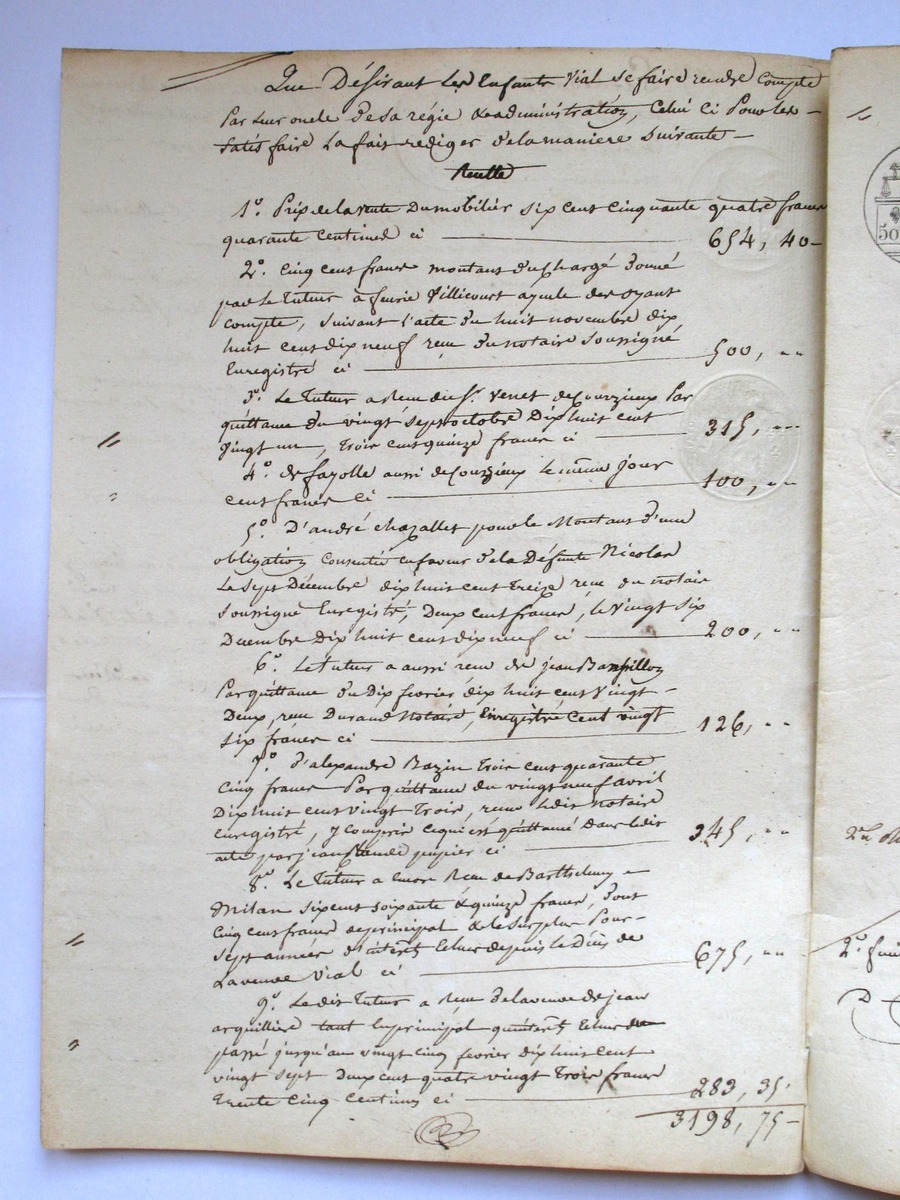 Que Désirant Les Enfants Vial se faire rendre Compte
Par Leur oncle de sa régie & administration, Celui ci Pour les
satisfaire La fait rédiger de la manière suivante
Recette
1º. Prix de la vente Du mobilier six cent cinquante quatre francs
quarante centimes ci 654, 40
2º. Cinq cent francs montant du chargé Donné
par le Tuteur à Villicourt ayeule des oyant
compte, suivant l'acte du huit novembre dix
huit cent dix neuf reçu du notaire soussigné
Enregistré ci 500, "
3º. Le Tuteur a Reçu du Sr. Venet de Courzieux Par
quittance du vingt sept octobre Dix huit cent
vingt un, Trois cent quinze francs ci 315, "
4º. de fayolle aussi de Courzieux le même jour
cent francs ci 100, "
5º. D'andré Chazallet pour le Montant d'une
obligation consentie en faveur de la Défunte Nicolas
Le sept Décembre dix huit cent treize reçu du notaire
soussigné Enregistré, Deux cent francs, le vingt six
Décembre Dix huit cent dix neuf ci 200, "
6º. Le tuteur a aussi reçu de jean
Par quittance du Dix fevrier dix huit cent vingt
Deux, reçu Durand Notaire, Enregistré Cent vingt
six francs ci 126, "
7º d'alexandre Bazin Trois cent quarante
cinq francs Par quittance du vingt neuf avril
Dix huit cent vingt Trois, reçu ledit notaire
enregistré, y compris ce qui est quittancé dans ledit
acte par jean papier ci 345, "
8º. Le Tuteur a encore Reçu de Barthelemy
Milan six cent soixante & quinze francs, dont
Cinq cent francs de principal & le surplus Pour
sept années d'intérêt Echus depuis le Décès de
La veuve Vial ci 675, "
9º. Le dit Tuteur a Reçu de la veuve de jean
arquillière tant En principal qu'intérêt Echus du
passé jusqu'au vingt cinq fevrier dix huit cent
vingt sept Deux cent quatre vingt Trois francs
trente cinq centimes ci 283, 35
3198, 75
50